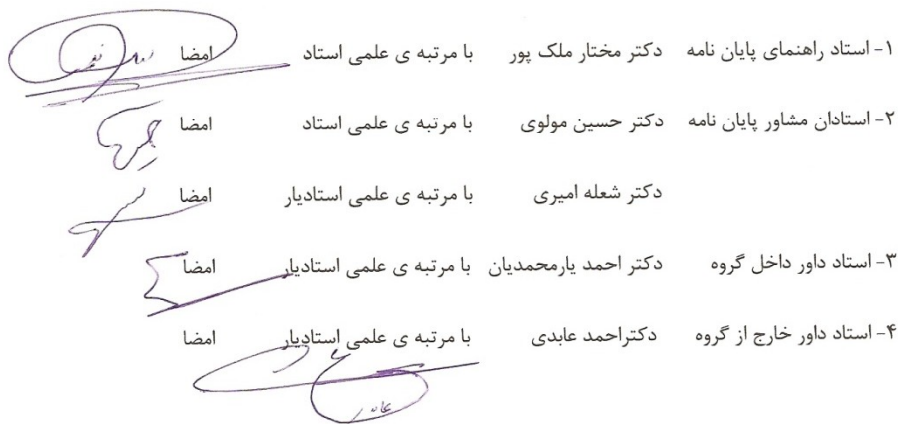 ۱- استاد راهنمای پایان نامه دکتر مختار ملک پور با مرتبه ی علمی استاد امضا
۲- استادان مشاور پایان نامه دکتر حسین مولوی با مرتبه ی علمی استاد امضا
دکتر شعله امیری با مرتبه ی علمی استادیار امضا
۳- استاد داور داخل گروه دکتر احمد یارمحمدیان با مرتبه ی علمی استادیار امضا
۴- استاد داور خارج از گروه دکتراحمد عابدی با مرتبه ی علمی استادیار امضا